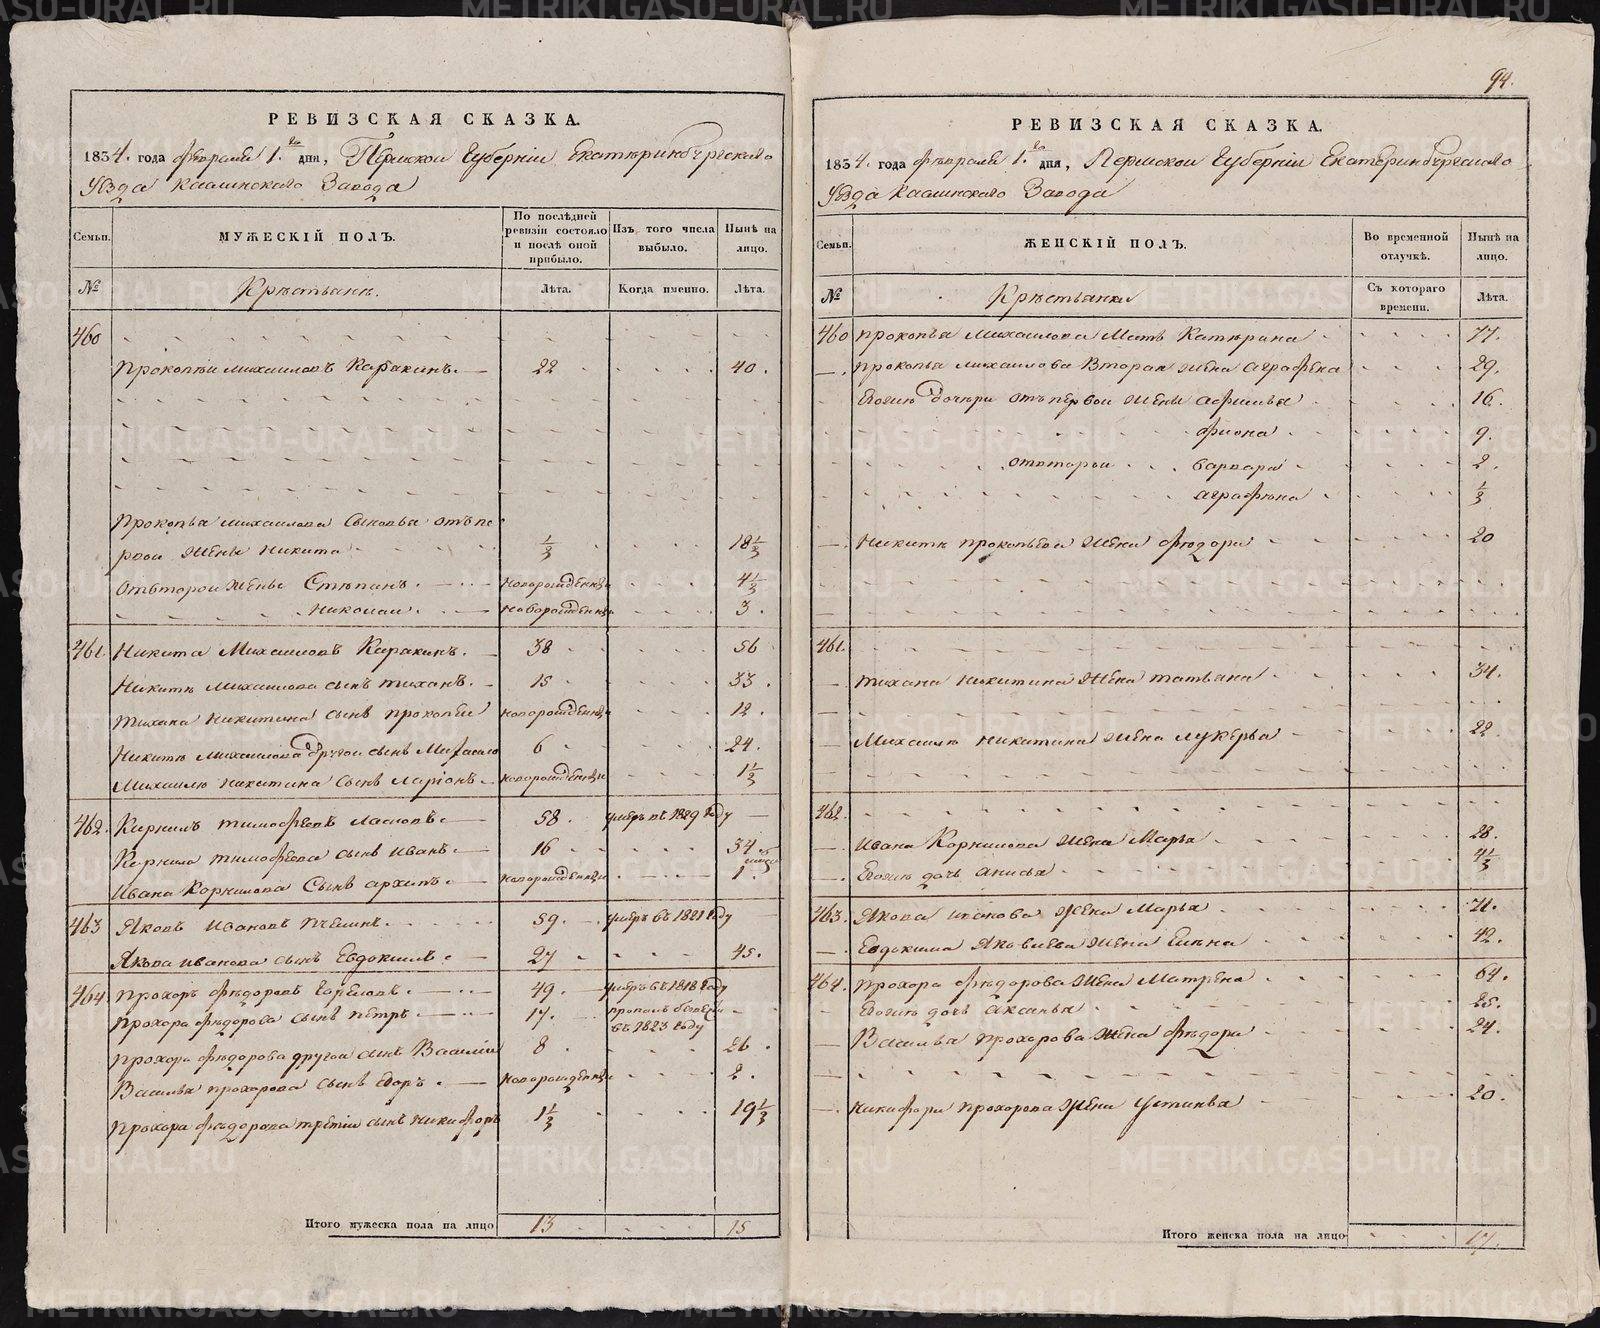 94.
РЕВИЗСКАЯ СКАЗКА.
1834. года февраля 1.го дня, Пермской Губерніи Екатеринбургскаго
Уѣзда Каслинскаго Завода
Семьи.
МУЖЕСКІЙ ПОЛЪ.
По послѣдней ревизіи состояло и послѣ оной прибыло.
Изъ того числа выбыло.
Нынѣ на лицо.
№
Крестьяне.
Лѣта.
Когда именно.
Лѣта.
460
Прокопѣи михаиловъ Каракинъ. 22 40.
Прокопья михаилова Сыновья отъ пе
рвои жены Никита 1/3 18 1/3
Отвторои жены Степанъ. новорожденны 4 1/3
Николаи. новорожденны 3.
461. Никита Михаиловъ Каракинъ. 38 56
Никиты михаилова сынъ тиханъ. 15 33.
тихана никитина сынъ прокопеи новорожденны 12.
Никиты михаилова другои сынъ Михаило 6 24.
Михаилы никитина сынъ Ларіонъ новорожденны 1 1/3
462. Карнилъ тимофеевъ 58. умеръ въ 1829 году
Карнила тимофеева сынъ Иванъ. 16 34
Ивана Корнилова Сынъ архипъ. новорожденны 1
463 Яковъ Ивановъ 59. умеръ въ 1821 году
Якова иванова сынъ Евдокимъ. 27 45.
464 Прохоръ федоровъ 49. умеръ въ 1818 году
Прохора федорова сынъ петръ 17.
въ 1823 году
прохора федорова другои сынъ Василіи 8 26.
Василья прохорова сынъ Егоръ. новорожденны 2.
прохора федорова третіи сынъ никифоръ 1 1/3 19 1/3
Итого мужеска пола на лицо 13 15
РЕВИЗСКАЯ СКАЗКА.
1834. года февраля 1.го дня, Пермской Губерніи Екатеринбургскаго
Уѣзда Каслинскаго Завода
Семьи.
ЖЕНСКІЙ ПОЛЪ.
Во временной отлучкѣ.
Нынѣ на лицо.
№
Крестьянки
Съ котораго времени.
Лѣта.
460 прокопья михаилова Мать Катерина 77.
прокопья михаилова Вторая жена аграфена 29.
Егоже дочери отъ первои жены афимья 16.
фиона 9.
отвторои варвара 2.
аграфена 1/3
Никиты прокопьева жена федора 20
461.
тихана никитина жена татьяна 34.
Михаилы никитина жена лукерья 22
462.
Ивана Корнилова жена Марья 28.
Егоже дочь анисья 4 1/3
463. Якова иванова жена Марья 71.
Евдокима Яковлева жена Елена 42.
464. Прохора федорова жена Матрена 64.
Егоже дочь аксинья 25.
Василья прохорова жена федора 24.
никифора прохорова жена устинья 20.
Итого женска пола на лицо 17.
METRIKI.GASO-URAL.RU